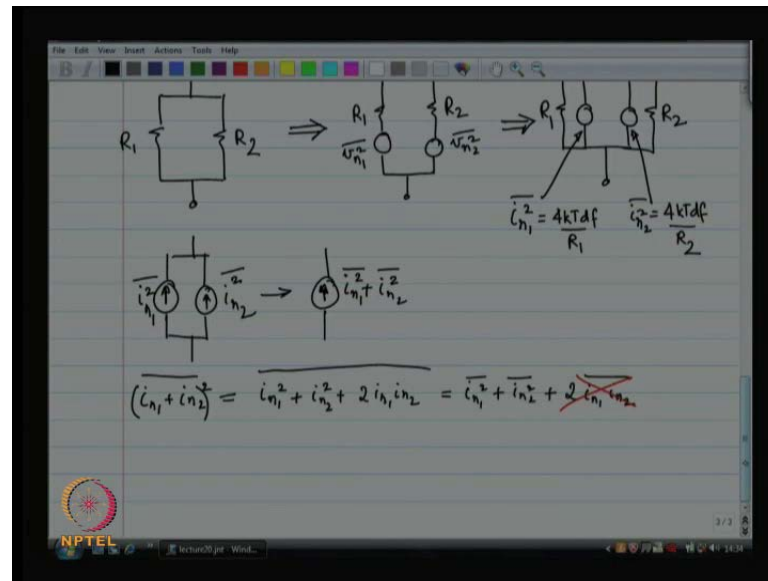 File Edit View Insert Actions Tools Help
B I
R₁ R₂ ⇒ R₁ R₂ ⇒ R₁ R₂
\overline{v_{n_1}^2} \overline{v_{n_2}^2}
\overline{i_{n_1}^2} = \frac{4kTdf}{R_1} \overline{i_{n_2}^2} = \frac{4kTdf}{R_2}
\overline{i_{n_1}^2} \overline{i_{n_2}^2} → \overline{i_{n_1}^2} + \overline{i_{n_2}^2}
\overline{(i_{n_1} + i_{n_2})^2} = \overline{i_{n_1}^2 + i_{n_2}^2 + 2 i_{n_1} i_{n_2}} = \overline{i_{n_1}^2} + \overline{i_{n_2}^2} + 2 \overline{i_{n_1} i_{n_2}}
3/3
NPTEL
lecture20.jnt - Wind...
14:34